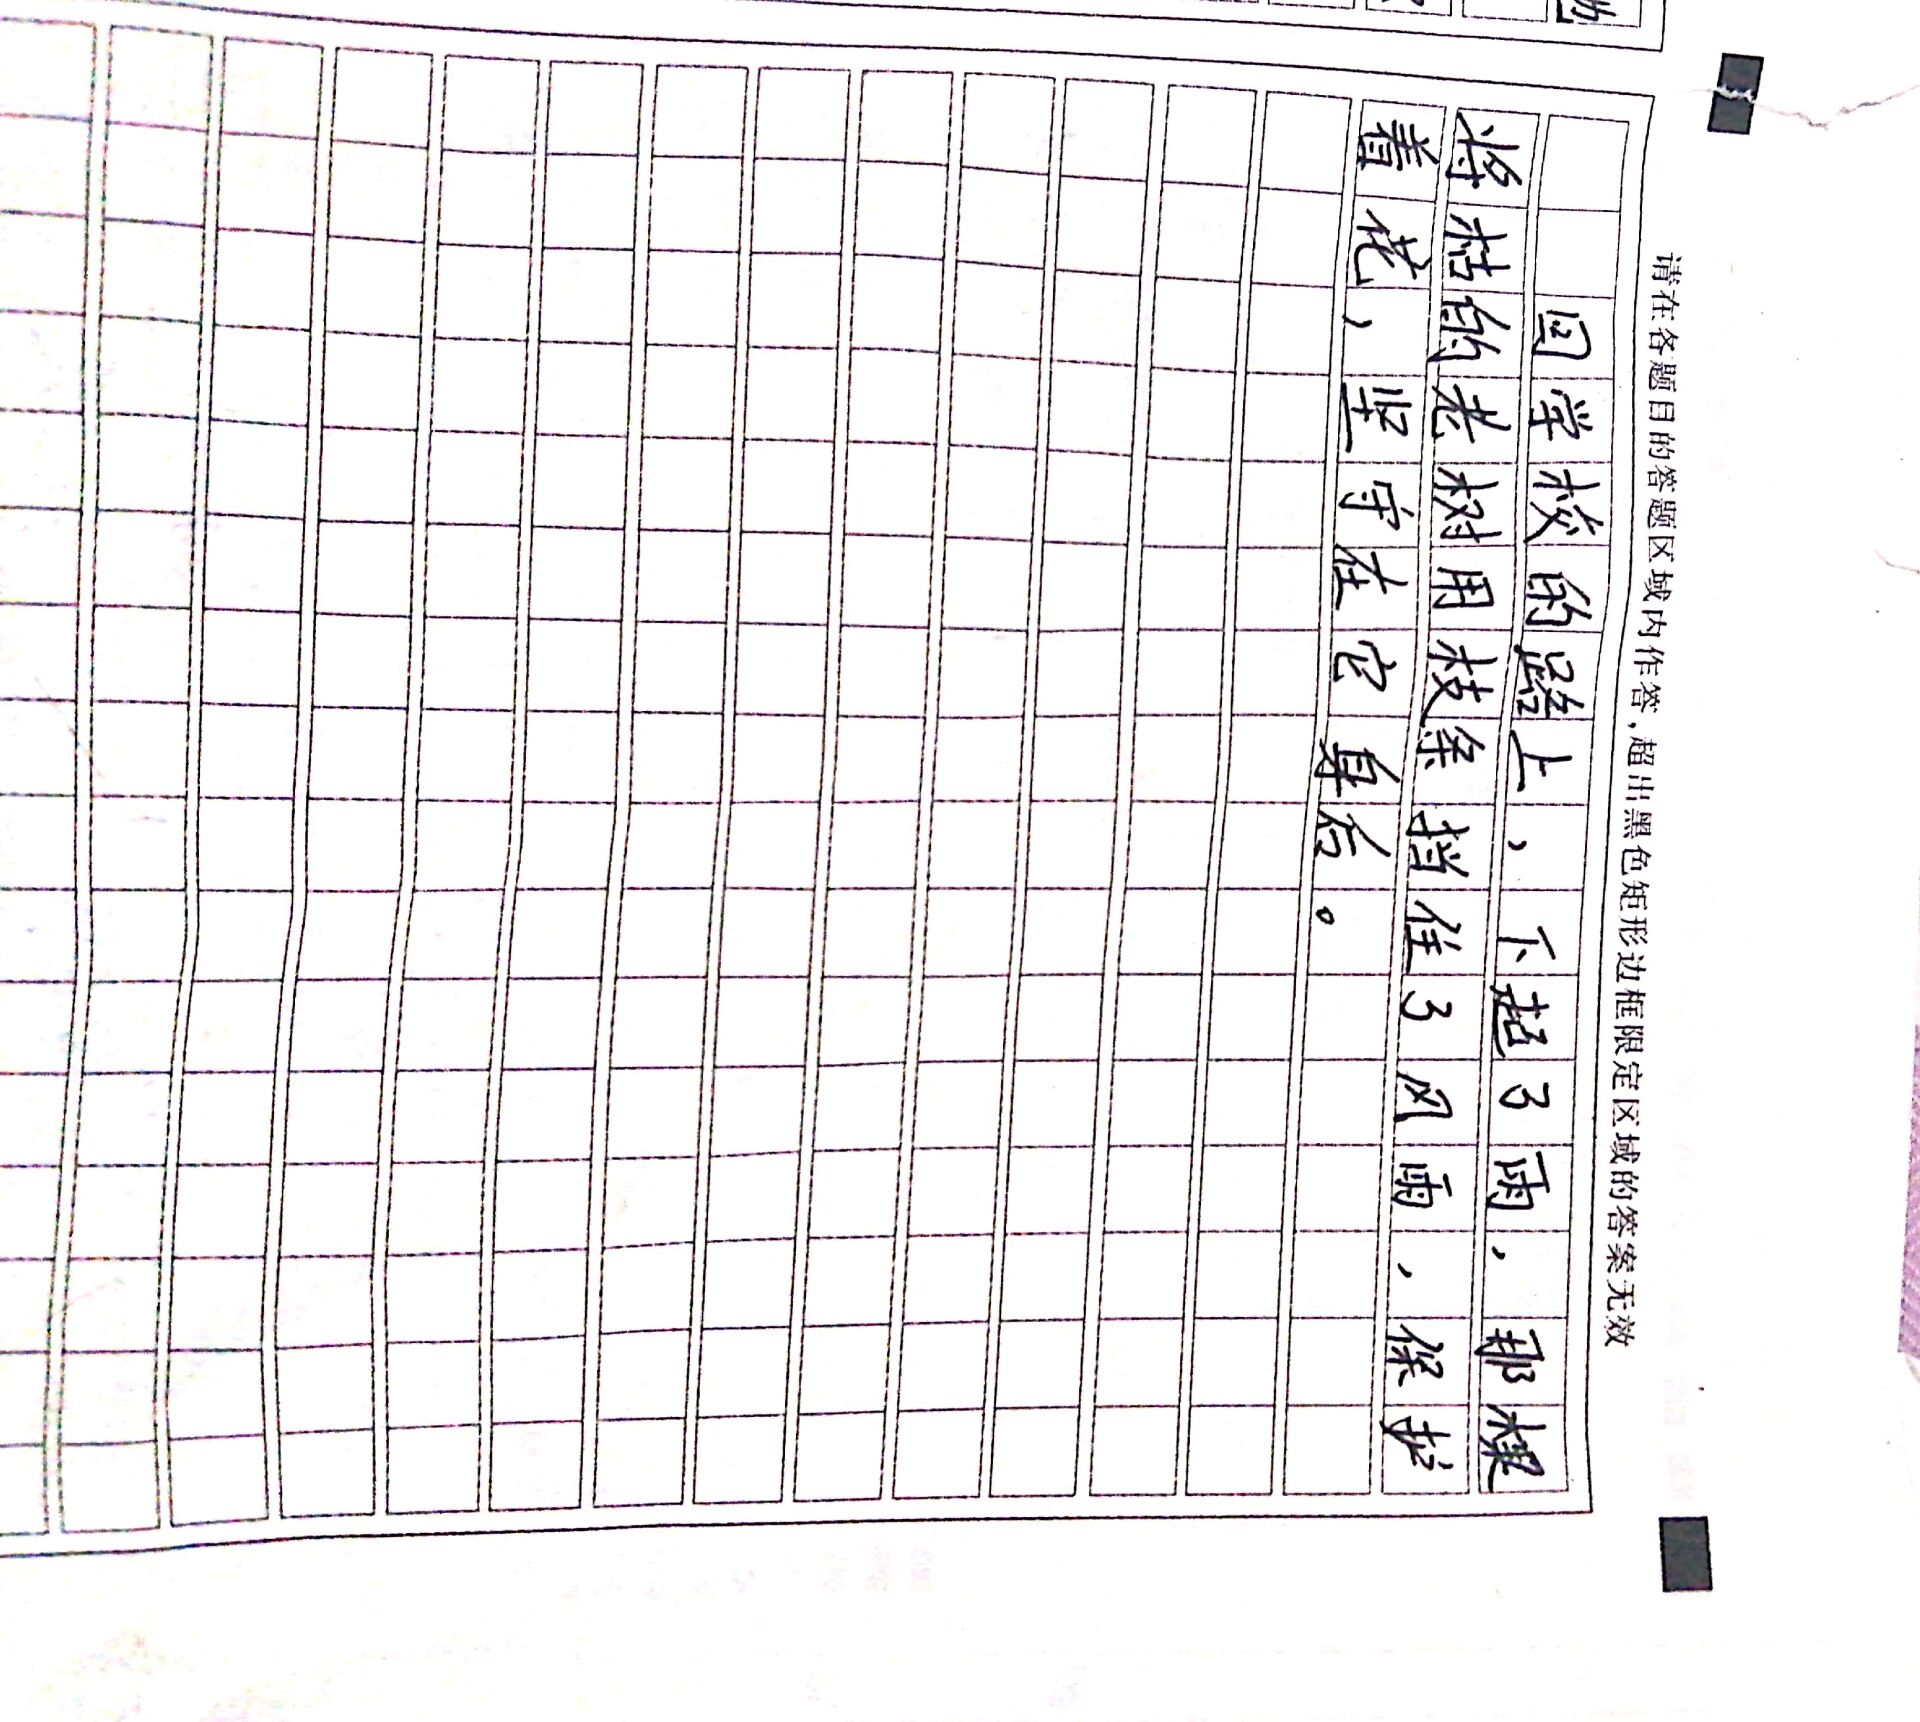 请在各题目的答题区域内作答，超出黑色矩形边框限定区域的答案无效
回学校的路上，下起了雨，那棵
将枯的老树用枝条挡住了风雨，保护
着花，坚守在它身后。